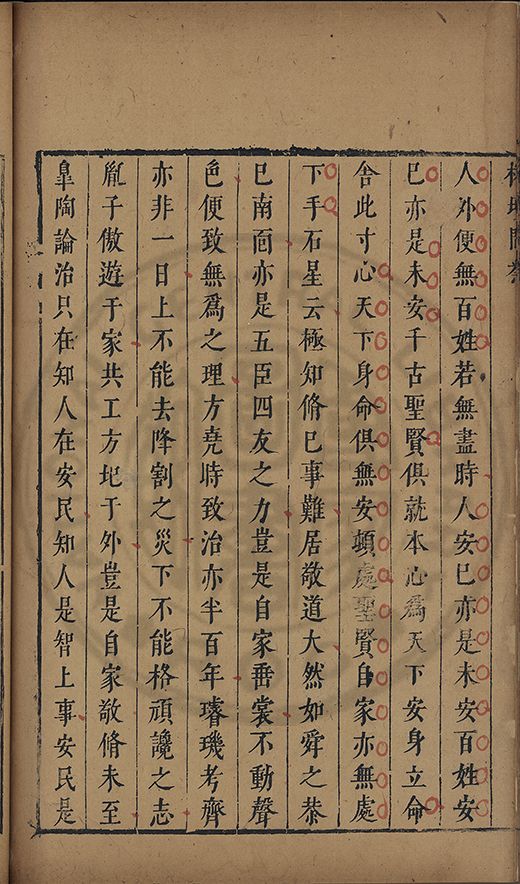 人外便無百姓若無盡時人安巳亦是未安百姓安
巳亦是未安千古聖賢俱就本心為天下安身立命
舍此寸心天下身命俱無安頓處聖賢自家亦無處
下手石星云極知脩巳事難居敬道大然如舜之恭
巳南面亦是五臣四友之力豈是自家垂裳不動聲
色便致無為之理方堯時致治亦半百年璿璣考齊
亦非一日上不能去降割之災下不能格頑讒之志
胤子傲遊于家共工方圮于外豈是自家敬脩未至
臯陶論治只在知人在安民知人是智上事安民是